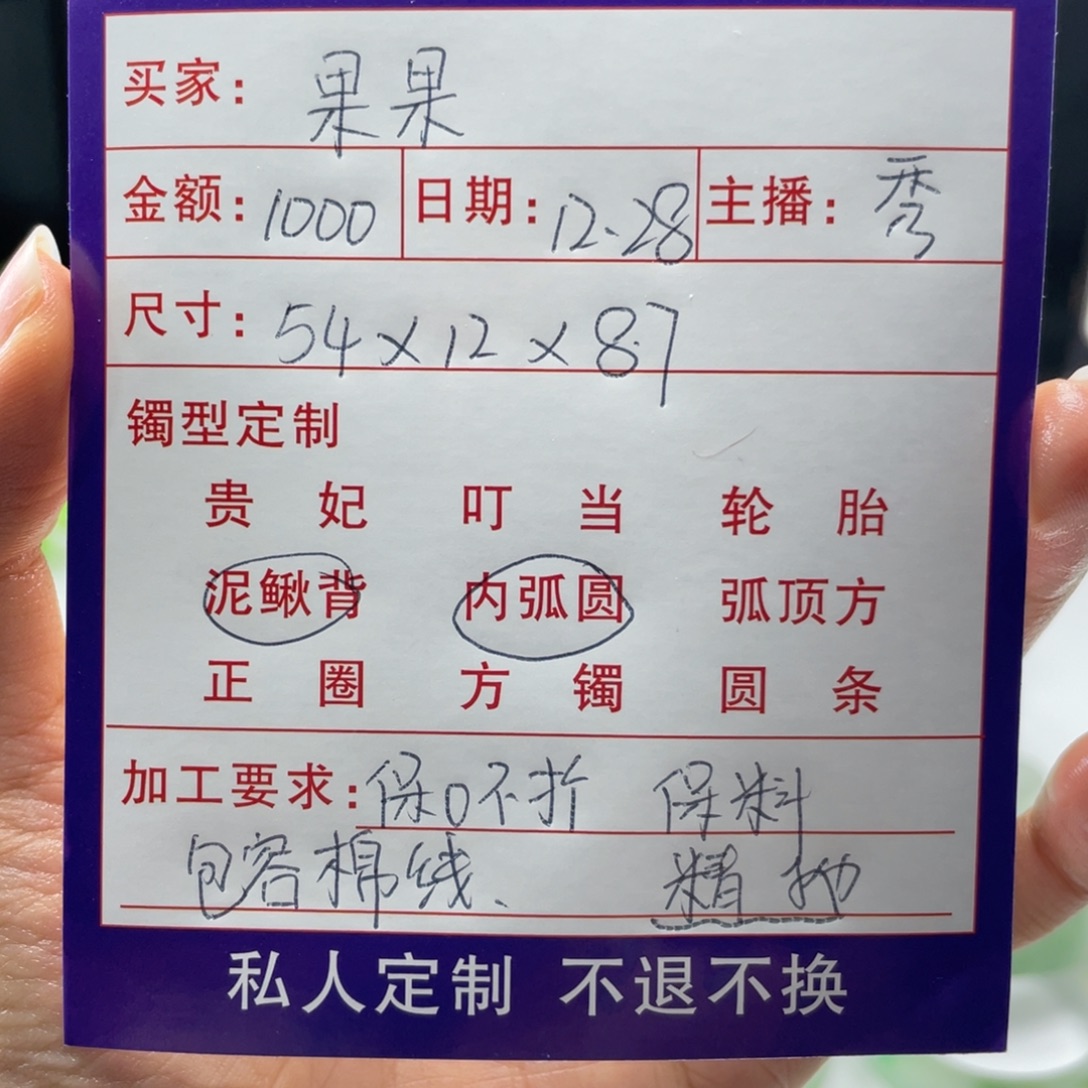 买家：果果
金额：1000 日期：12.28 主播：秀
尺寸：54×12×8.7
镯型定制
贵妃 叮当 轮胎
泥鳅背 内弧圆 弧顶方
正圈 方镯 圆条
加工要求：保口不折 保料
包容棉线、 精抛
私人定制 不退不换